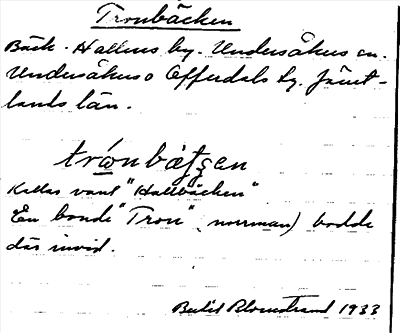 Tronbäcken
Bäck. Hallens by. Undersåkers sn.
Undersåkers o Offerdals tg. Jämt-
lands län.
trώnbæ̀ʃʒen
Kallas vanl "Hallbäcken"
En bonde "Tron" (norrman) bodde
där invid.
Bertil Blomstrand 1933